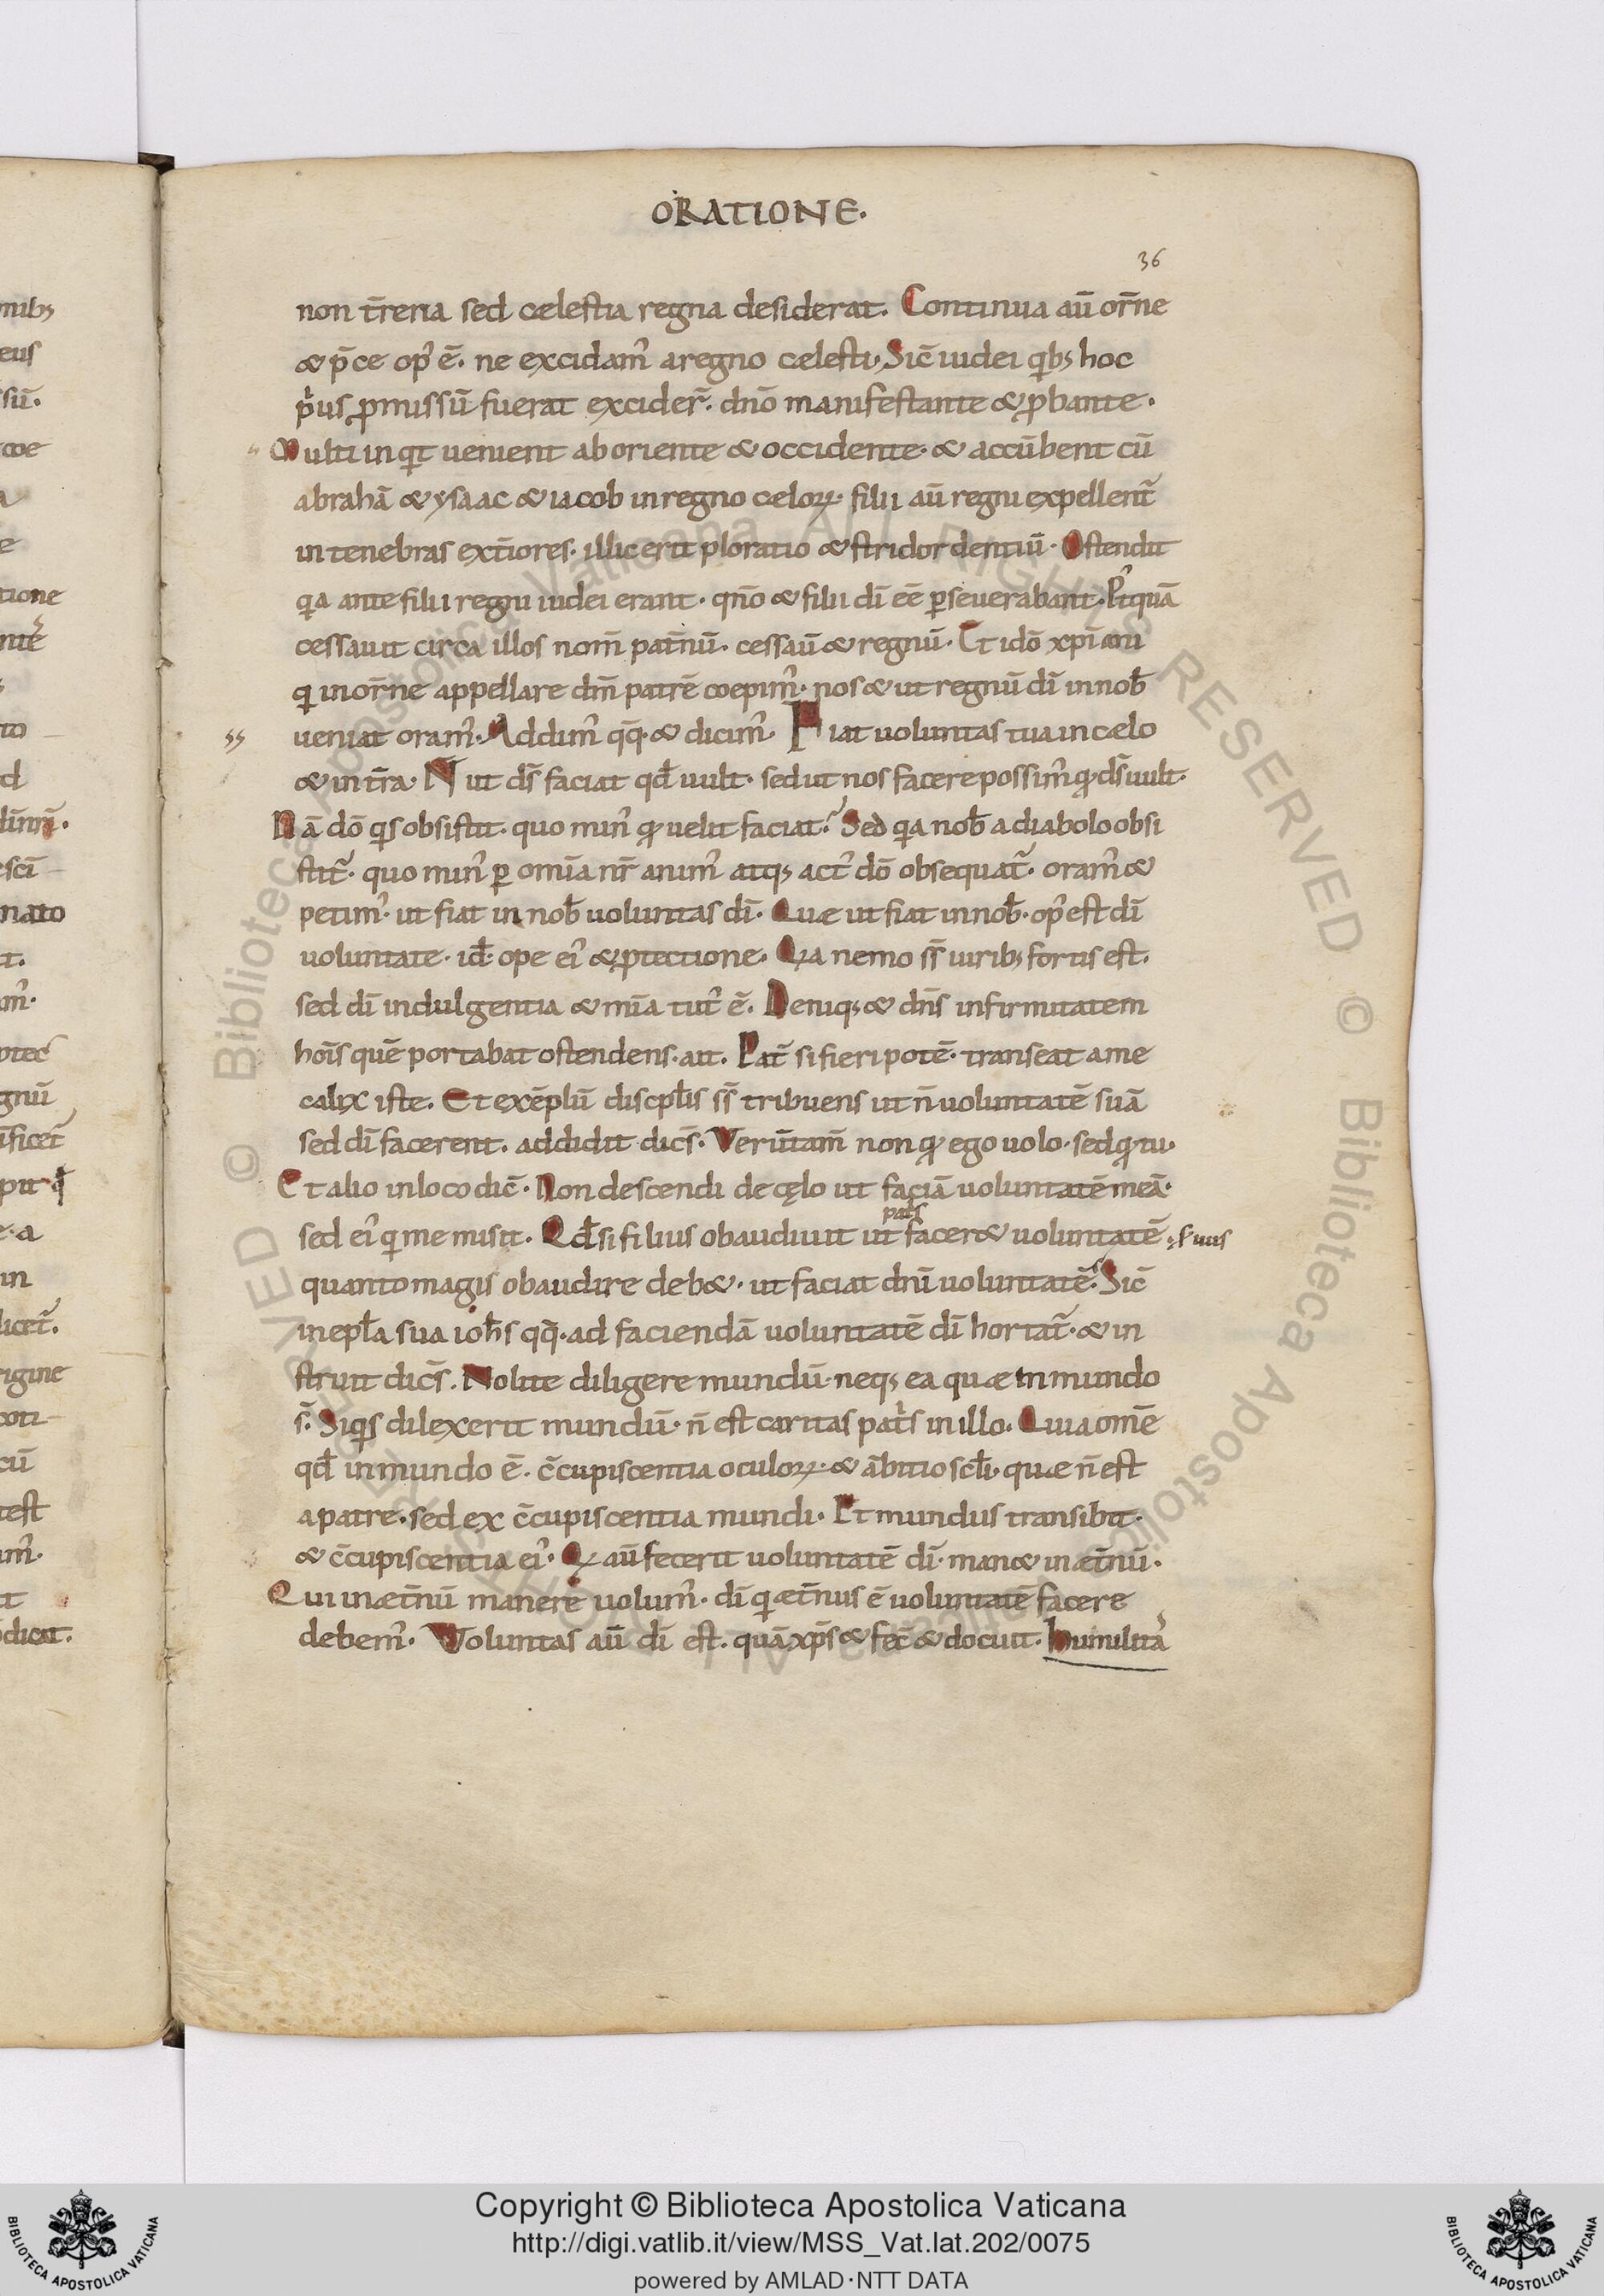 ORATIONE.
36
non t̄rena sed cælestia regna desiderat. Continua aū or̄ne
& p̄ce op᾽ ē. ne excidam᾽ a regno cælesti. Sic̄ iudei qb; hoc
p̓us ꝓmissū fuerat excider̄. dn̄o manifestante & ꝓbante.
Multi inqt uenient ab oriente & occidente. & accūbent cū
abrahā & ysaac & iacob in regno cæloꝝ. filii aū regni expellent᷑
in tenebras ext̄iores. illic erit ploratio & stridor dentiū. Ostendit
qa ante filii regni iudei erant. qn̄o & filii dī eē ꝑseuerabant. P᾽tquā
cessauit circa illos nom̄ pat̄nū. cessau̅ & regnū. Et idō xp̄iani
qi in or̄ne appellare dn̄m patrē coepim᾽. nos & ut regnū dī in nob̄
ueniat oram᾽. Addim᾽ qq̄. & dicim᾽. Fiat uoluntas tua in cælo
& in t̄ra. N̄ ut ds̄ faciat qd̄ uult. sed ut nos facere possim᾽ qꝫ ds̄ uult.
Nā dō qs obsistit. quo min᾽ qꝫ uelit faciat? Sed qa nob̄ a diabolo obsi
stit᷑. quo min᾽ ꝑ omīa nr̄ anim᾽ atq; act᾽ dō obsequat᷑. oram᾽ &
petim᾽. ut fiat in nob̄ uoluntas dī. Quæ ut fiat in nob̄. op᾽ est dī
uoluntate. id̄. ope ei᾽ & ꝓtectione. Qa nemo ss̄ uirib; fortis est.
sed dī indulgentia & mīa tut᾽ ē. Deniq; & dn̄s infirmitatem
hoīs quē portabat ostendens. ait. Pat̄ si fieri potē. transeat a me
calix iste. Et exēplū discpl̄is ss̄ tribuens ut n̄ uoluntatē suā
sed dī facerent. addidit dic̄s. Verūtam̄ non qꝫ ego uolo. sed qꝫ tu.
Et alio in loco dic̄. Non descendi de cęlo ut faciā uoluntatē meā.
pat̓s
sed ei᾽ qi me misit. Qd̄ si filius obaudiuit ut facer& uoluntatē.
quanto magis obaudire deb&. ut faciat dn̄i uoluntatē? Sic̄
in epl̄a sua ioh̄s qq̄. ad faciendā uoluntatē dī hortat᷑. & in
struit dic̄s. Nolite diligere mundū. neq; ea quæ in mundo
s̄. Siqs dilexerit mundū. n̄ est caritas pat̓s in illo. Quia omē
qd̄ in mundo ē. c̄cupiscentia oculoꝝ. & ābitio scl̄i. quæ n̄ est
a patre. sed ex c̄cupiscentia mundi. Et mundus transibit.
& c̄cupiscentia ei᾽. Qi aū fecerit uoluntatē dī. man& in æt̄nū.
Qui in æt̄nū manere uolum᾽. dī qi æt̄nus ē uoluntatē facere
debem᾽. Voluntas aū dī est. quā xp̄s & fec̄ & docuit. humilita᾽
© Biblioteca Apostolica Vaticana ALL RIGHTS RESERVED © Biblioteca Apostolica Vaticana ALL RIGHTS RESERVED
Copyright © Biblioteca Apostolica Vaticana
http://digi.vatlib.it/view/MSS_Vat.lat.202/0075
powered by AMLAD·NTT DATA
BIBLIOTECA APOSTOLICA VATICANA
BIBLIOTECA APOSTOLICA VATICANA